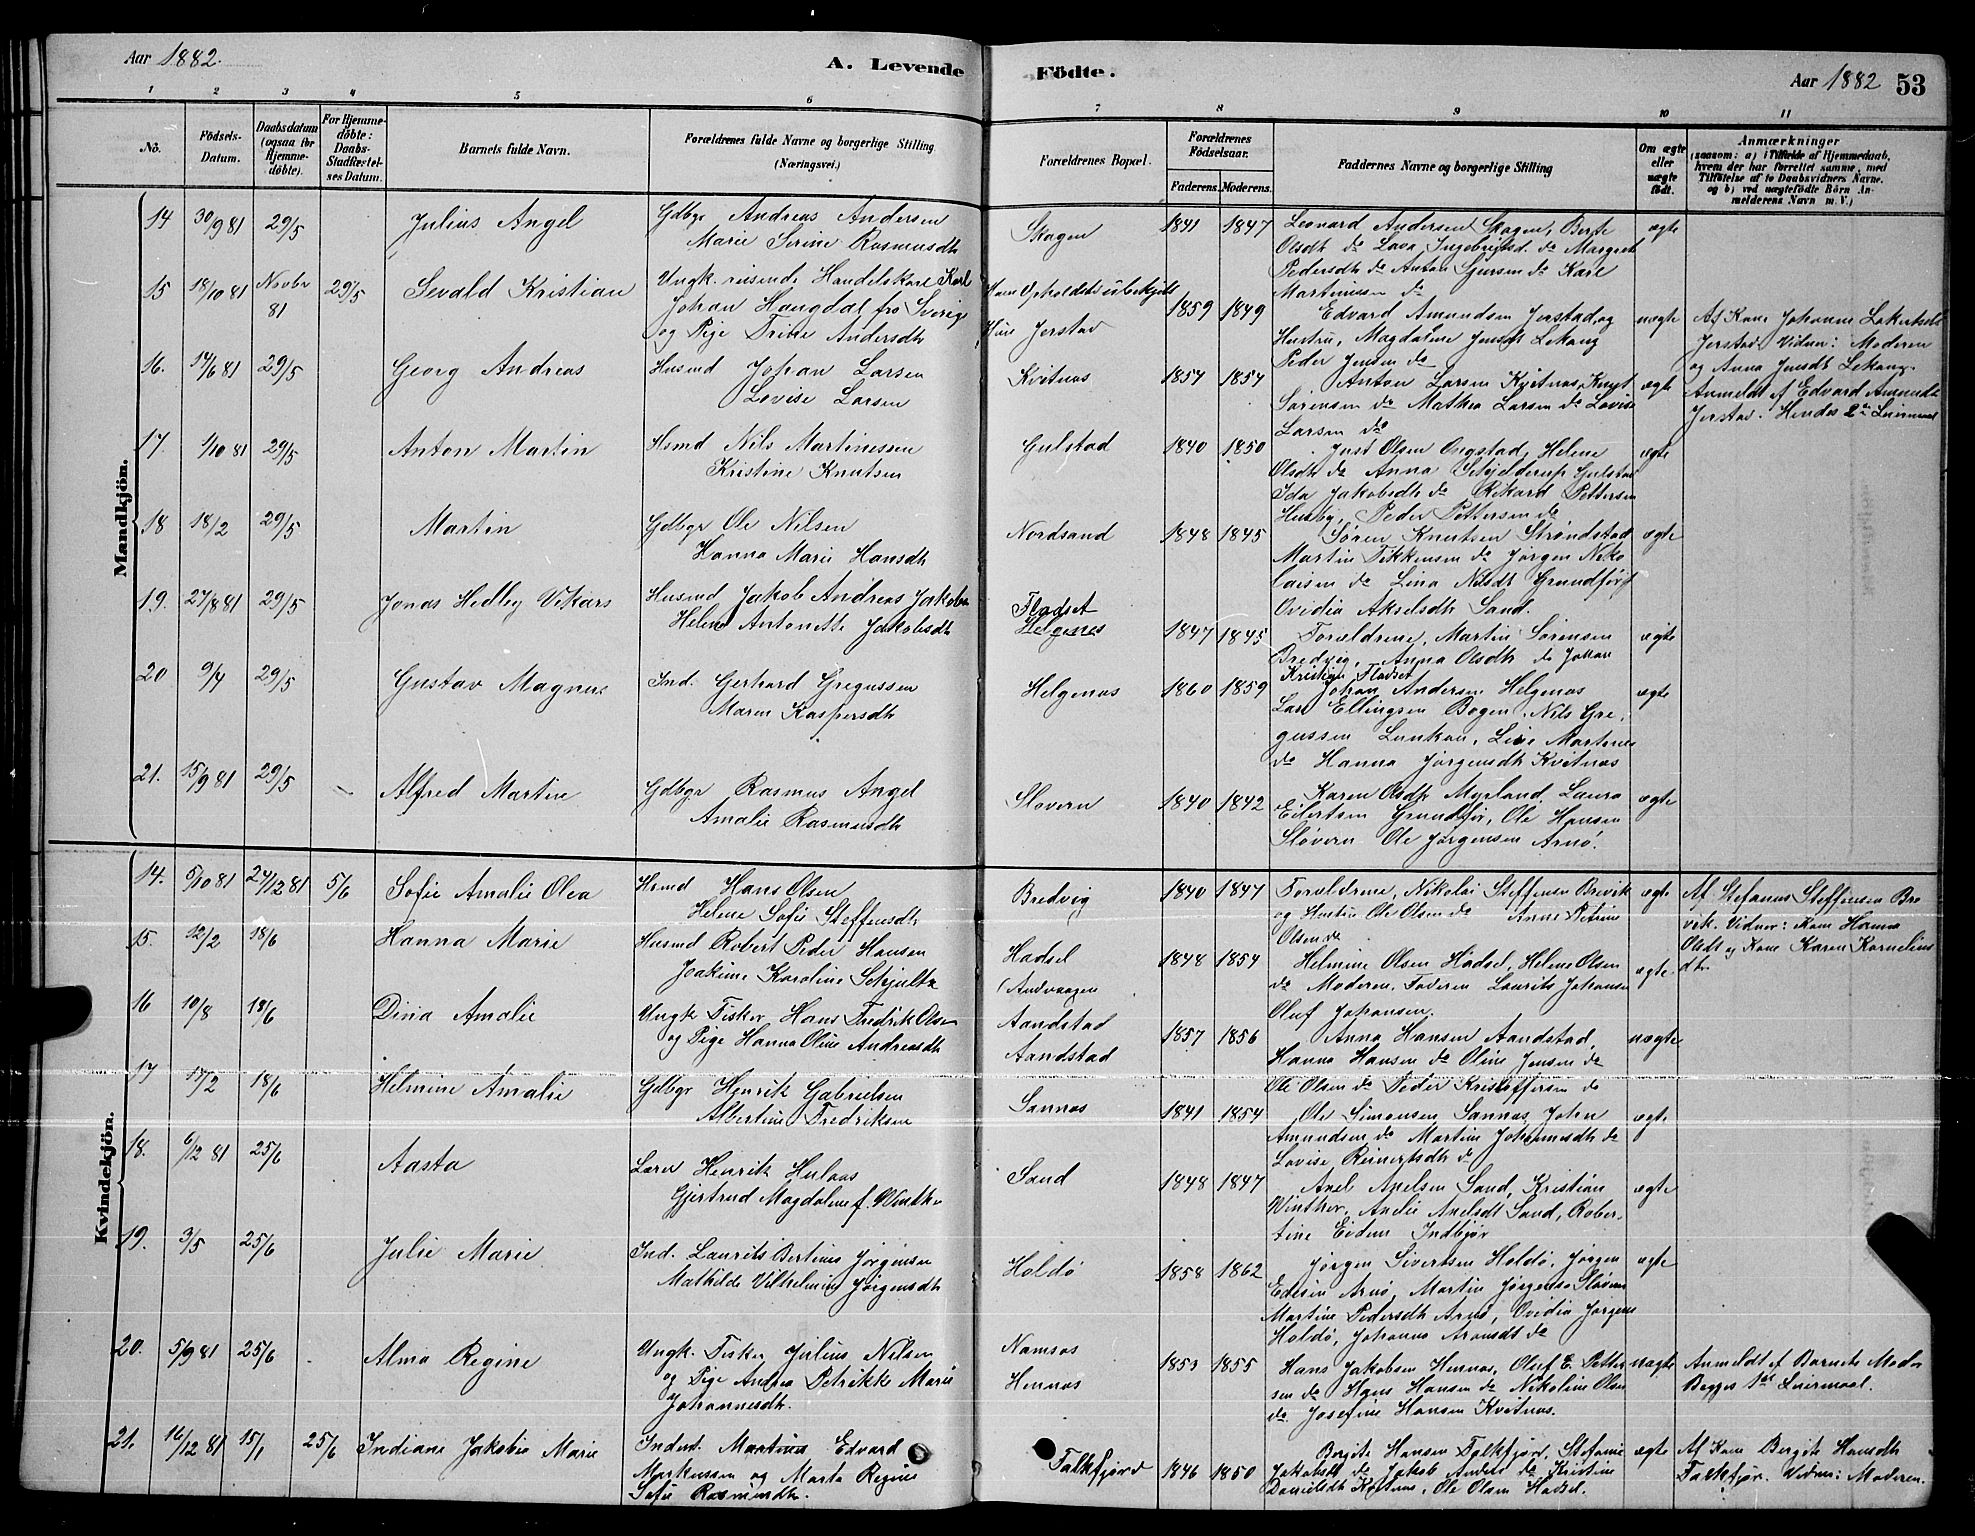 Aar 1882.
A. Levende Födte.
Aar 1882 53
1 2 3 4 5 6 7 8 9 10 11
Nô.
Födsels-Datum.
Daabsdatum (ogsaa for Hjemme-døbte).
For Hjemme-døbte: Daabs-Stadfæstel-ses Datum.
Barnets fulde Navn.
Forældrenes fulde Navne og borgerlige Stilling (Næringsvei.)
Forældrenes Bopæl.
Forældrenes Födselsaar.
Faderens. Moderens.
Faddernes Navne og borgerlige Stilling
Om ægte eller uægte födt.
Anmærkninger
(saasom: a) i Tilfælde af Hjemmedaab, hvem der har forrettet samme, med Tilföielse af to Daabsvidners Navne, og b) ved uægtefödte Börn An-melderens Navn m. V.)
Mandkjön.
14 30/9 81 29/5 Julius Angel
Gdbgr Andreas Andersen
Marie Serine Rasmusdtr
Skagen 1841 1847
Leonard Andersen Skagen, Berte
Olsdtr do Lava Ingebrigtsd. do Margret
Pedersdtr do Anton Sjursen do Karl
Martinusen do
ægte
15 18/10 81 Novbr 81 29/5 Sevald Kristian
Ungk. reisende Handelskarl Karl
Johan Haugdal fra Sverige
og Pige Trine Andersdtr
Hans Opholdssted ubekjendt
Hun Jerstad 1859 1849
Edvard Amundsen Jerstad, og
Hustru, Magdalene Jensdt Lekang
Peder Jensen do
uægte
Af Kone Johanna
Jerstad. Vidner: Moderen
og Anna Jensdt Lekang.
Anmeldt af Edvard Amundsen
Jerstad. Hendes 2det Leiermaal
16. 14/6 81 29/5 Georg Andreas
Husmd Johan Larsen
Lovise Larsen
Kvitnæs 1854 1854
Anton Larsen Kvitnæs, Knut
Sørensen do Mathea Larsen do Lovise
Larsen do
ægte
17. 1/10 81 29/5 Anton Martin
Hsmd Nils Martinussen
Kristine Knutsen
Gulstad 1840 1850
Just Olsen Ongstad, Helene
Olsdtr do Anna Schjelderup Gulstad
Ida Jakobsdtr do Rikard Pettersen
Husby, Peder Pettersen do
ægte
18 18/2 29/5 Martin
Gdbgr Ole Nilsen
Hanna Marie Hansdtr
Nordsand 1848 1845
Søren Knutsen Strøndstad
Martin Tikkensen do Jørgen Niko
laisen do Lina Nilsdt Grundfjør
Ovidia Akselsdtr Sand.
ægte
19. 27/8 81 29/5 Jonas Hedley Vikars
Husmd Jakob Andreas Jakobsen
Helene Antonette Jakobsdtr
Fladset
Helgenes 1847 1845
Forældrene, Martin Sørensen
Bredvig, Anna Olsdtr do Johan
Kristian Fladset
ægte
20 9/4 29/5 Gustav Magnus
Ind. Gerhard Gregussen
Maren Kaspersdtr
Helgenæs 1860 1859
Johan Andersen Helgenæs
Lars Ellingsen Bogen, Nils Gre
gussen Lunkan, Lise Martines
do Hanna Jørgensdtr Kvitnæs
ægte
21. 15/9 81 29/5 Alfred Martin
Gdbgr Rasmus Angel
Amalie Rasmusdtr
Slovern 1840 1842
Karen Olsdtr Myrland, Laura
Eilertsen Grundfjør, Ole Hansen
Sløvern Ole Jørgensen Arnø.
ægte
Kvindekjön.
14. 5/10 81 27/12 81 5/6 Sofie Amalie Olea
Hsmd Hans Olsen
Helene Sofie Steffensdtr
Bredvig 1840 1847
Forældrene, Nikolai Steffensen Brevik
og Hustru Ole Olsen do Anne Petrine
Olsen do
ægte
Af Stefanus Steffensen Bre
vik. Vidner: Kone Hanna
Olsdt og Kone Karen Kornelius
dtr
15. 12/2 18/6 Hanna Marie
Husmd Robert Peder Hansen
Joakime Karoline Schjultz
Hadsel
(Andvaagen 1848 1854
Helmine Olsen Hadsel, Helene Olsen
do Moderen, Faderen Laurits Johansen
Oluf Johansen.
ægte
16 10/8 18/6 Dina Amalie
Ungk. Fisker Hans Fredrik Olsen
og Pige Hanna Oline Andreasdtr
Aandstad
Aandstad 1857 1856
Anna Hansen Aandstad,
Hanna Hansen do Oline Jensen do
Ole Olsen do Peder Kristoffersen do
uægte
17 17/2 18/6 Helmine Amalie
Gdbgr Henrik Gabrielsen
Albertine Fredriksen
Sannæs 1841 1854
Ole Simonsen Sannæs, John
Amundsen do Martine Johannesdtr do
Lovise Reinertsdtr do
ægte
18. 6/12 81 25/6 Aasta
Lærer Henrik Hulaas
Gjertrud Magdalene f. Winther
Sand 1848 1847
Axel Axelsen Sand, Kristian
Winther, Andie Axelsdt Sand, Rober-
tine Eidem Indbjør
ægte
19. 3/5 25/6 Julie Marie
Ind. Laurits Bertinus Jørgensen
Mathilde Vilhelmine Jørgensdtr
Holdø 1858 1862
Jørgen Sivertsen Holdø, Jørgen
Edisen Arnø, Martin Jørgensen Sløvern
Martine Pedersdtr Arnø, Ovidia Jørgens
Holdø, Johanna Aronsdt do
ægte
20. 5/9 81 25/6 Alma Regine
Ungk. Fisker Julius Nilsen
og Pige Andrea Petrikke Marie
Johannesdtr.
Namsos
Hennæs 1853 1855
Hans Jakobsen Hennæs, Oluf E. Petter
sen do Hans Hansen do Nikoline Olsen
do Josefine Hansen Kvitnæs.
uægte
Anmeldt af Barnets Moder
Begges 1ste Leiermaal.
21. 16/12 81 15/1 25/6 Indiane Jakobie Marie
Inderst. Martinus Edvard
Markussen og Marta Regine
Sofie Rasmusdtr.
Falkfjord 1846 1850
Bergite Hansen Falkfjord, Stefanie
Jakobsdt do Jakob Anders do Kristine
Danielsdtr Kvitnæs, Ole Olsen Hadsel.
ægte
Af Kone Bergite Hansdtr
Falkfjør. Vidner: Moderen.